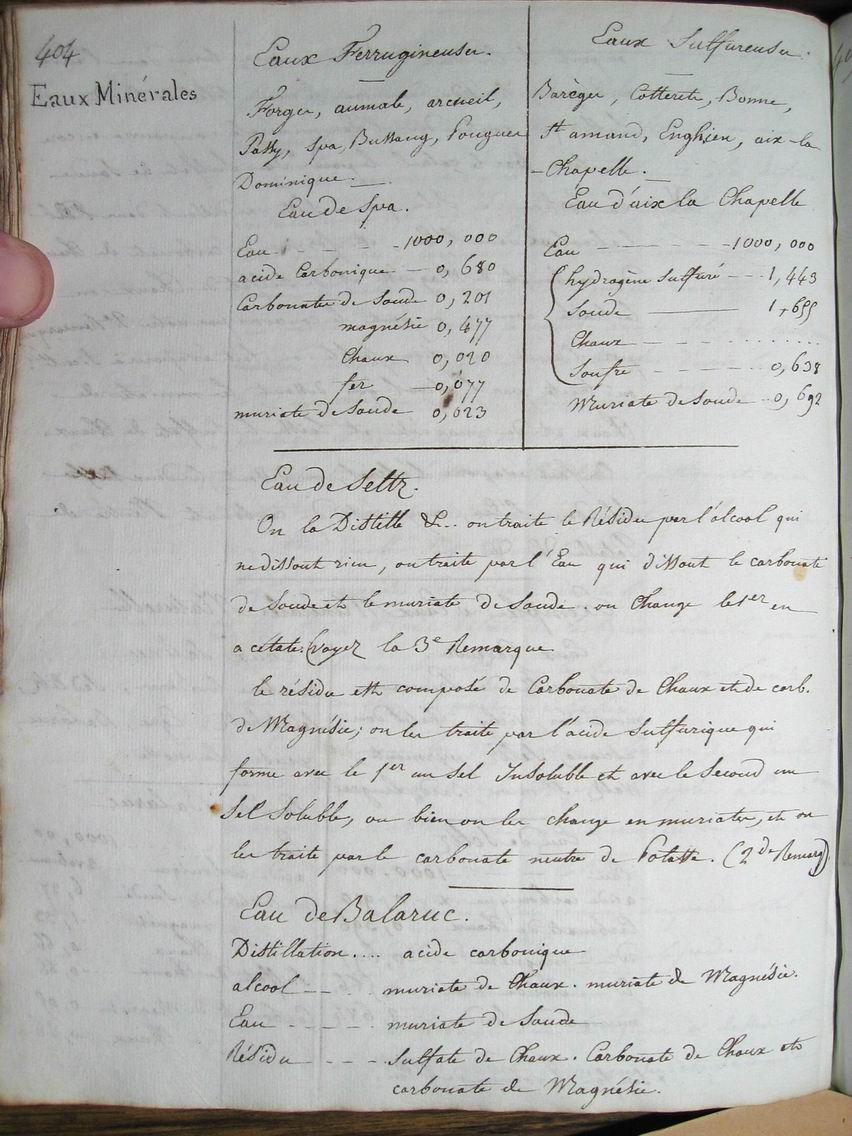 404
Eaux Minérales
Eaux Ferrugineuses.
Forges, aumale, arcueil,
Passy, Spa, Bussang, Pougues
Dominique.
Eau de Spa.
Eau - - - - 1000, 000
acide Carbonique — 0, 680
Carbonates de Soude 0, 201
magnésie 0, 477
Chaux 0, 020
fer — 0, 077
muriate de Soude 0, 023
Eaux Sulfureuses.
Barèges, Cotterets, Bonne,
St amand, Enghien, aix-la
-Chapelle.
Eau d'aix la Chapelle
Eau - - - - 1000, 000
hydrogène Sulfuré - - - 1, 443
Soude ——— 1, 655
Chaux - - - - . . . . . .
Soufre - - - - 0, 638
Muriate de Soude - - 0, 692
Eau de Seltz.
On la Distille &.. on traite le Résidu par l'alcool qui
ne dissout rien, on traite par l'Eau qui dissout le carbonate
de Soude et le muriate de Soude. on Change le 1er en
acétate. (voyez la 3e Remarque
le résidu est composé de Carbonate de Chaux et de carb.
de Magnésie; on les traite par l'acide Sulfurique qui
forme avec le 1er un sel Insoluble et avec le Second un
Sel Soluble, ou bien on les change en muriates, et on
les traite par le carbonate neutre de Potasse. (2de Remarq)
Eau de Balaruc.
Distillation.... acide carbonique
alcool - - - - muriate de Chaux. muriate de Magnésie.
Eau - - - - - muriate de Soude
Résidu - - - - Sulfate de Chaux. Carbonate de Chaux et
carbonate de Magnésie.